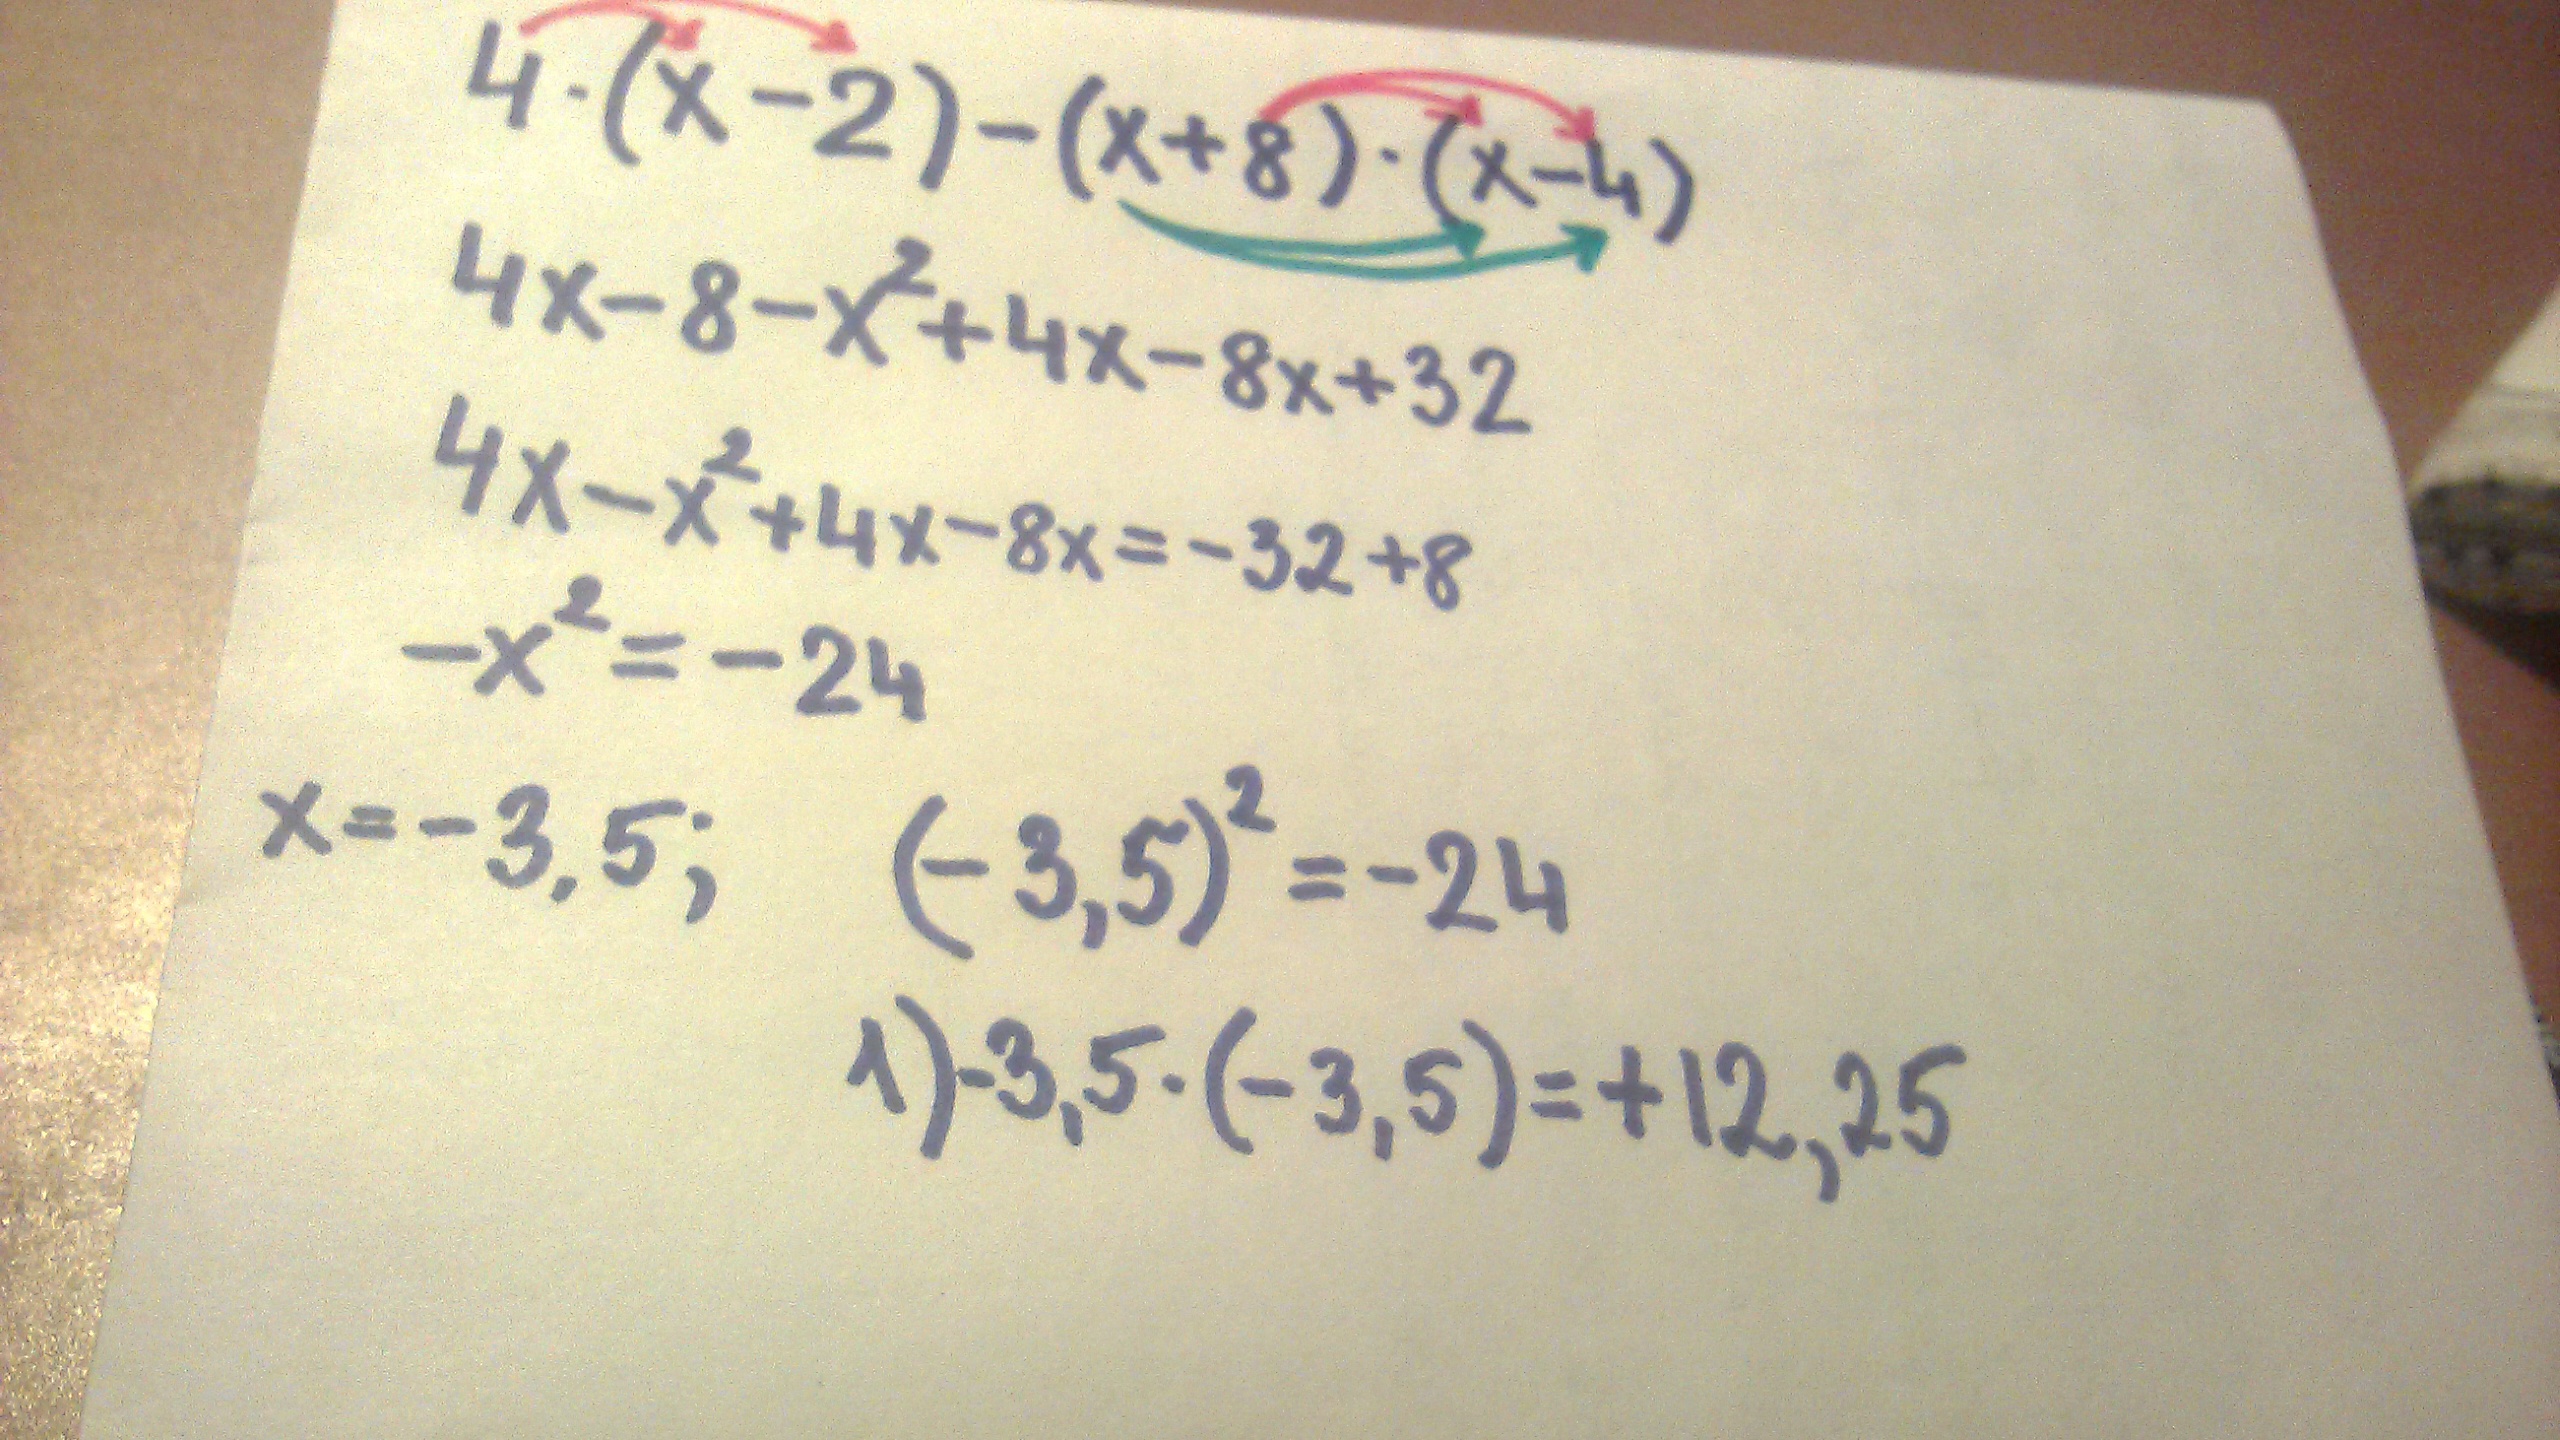 4·(x-2)-(x+8)·(x-4)
4x-8-x²+4x-8x+32
4x-x²+4x-8x=-32+8
-x²=-24
x=-3,5; (-3,5)²=-24
1)-3,5·(-3,5)=+12,25